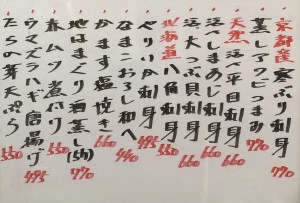 京都産 寒ぶり刺身 770
蒸しアワビつまみ 770
天然 活〆平目刺身 660
活〆刺身 660
活大つぶ貝刺身
北海道 八角刺身 550
やりいか刺身 495
なまこおろし和へ 440
かます塩焼き 660
地はまぐり酒蒸し(5ヶ) 770
ムツ煮付け 550
ウマズラハギ唐揚げ 495
たらの芽天ぷら 550